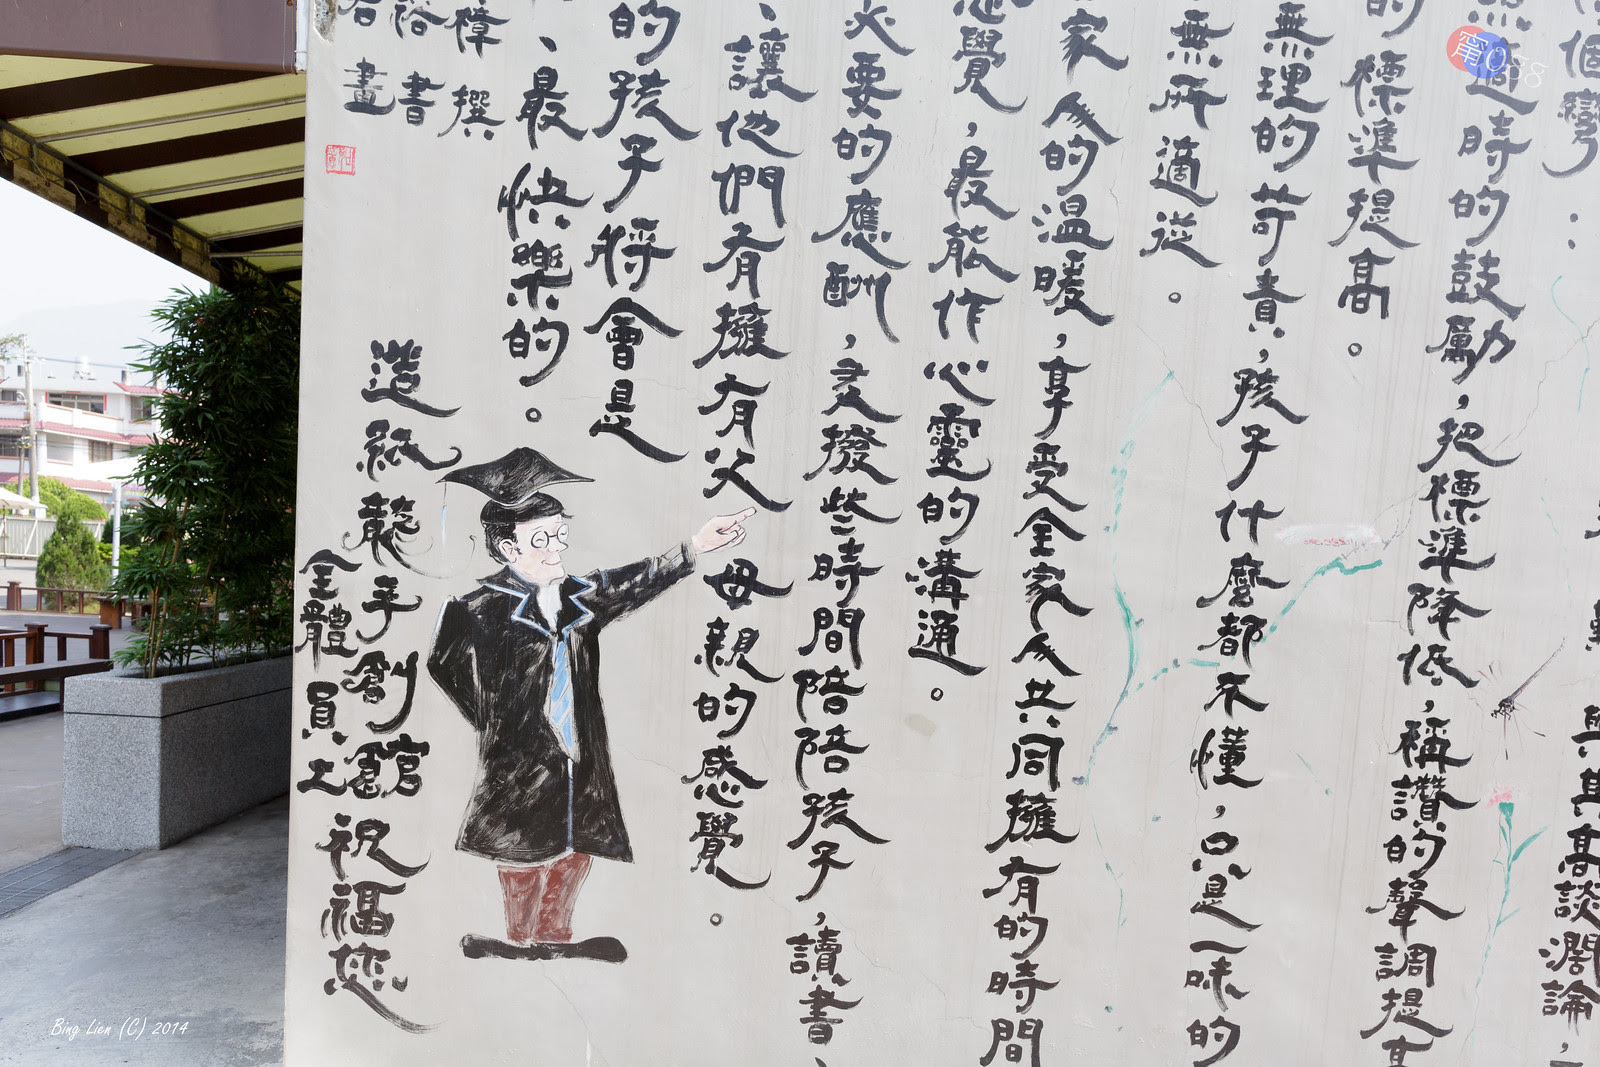 個彎
適時的鼓勵，把標準降低，稱讚的聲調提高
與其高談濶論，
的標準提高。
無理的苛責，孩子什麼都不懂，只是一味的
無所適從。
家人的温暖，享受全家人共同擁有的時間
感覺，最能作心靈的溝通。
必要的應酬，支撥些時間陪陪孩子，讀書、
、讓他們有擁有父母親的感覺。
的孩子將會是
、最快樂的。
樟撰
裕書
畫
造紙龍手創館
全體員工
祝福您
Bing Lien (C) 2014